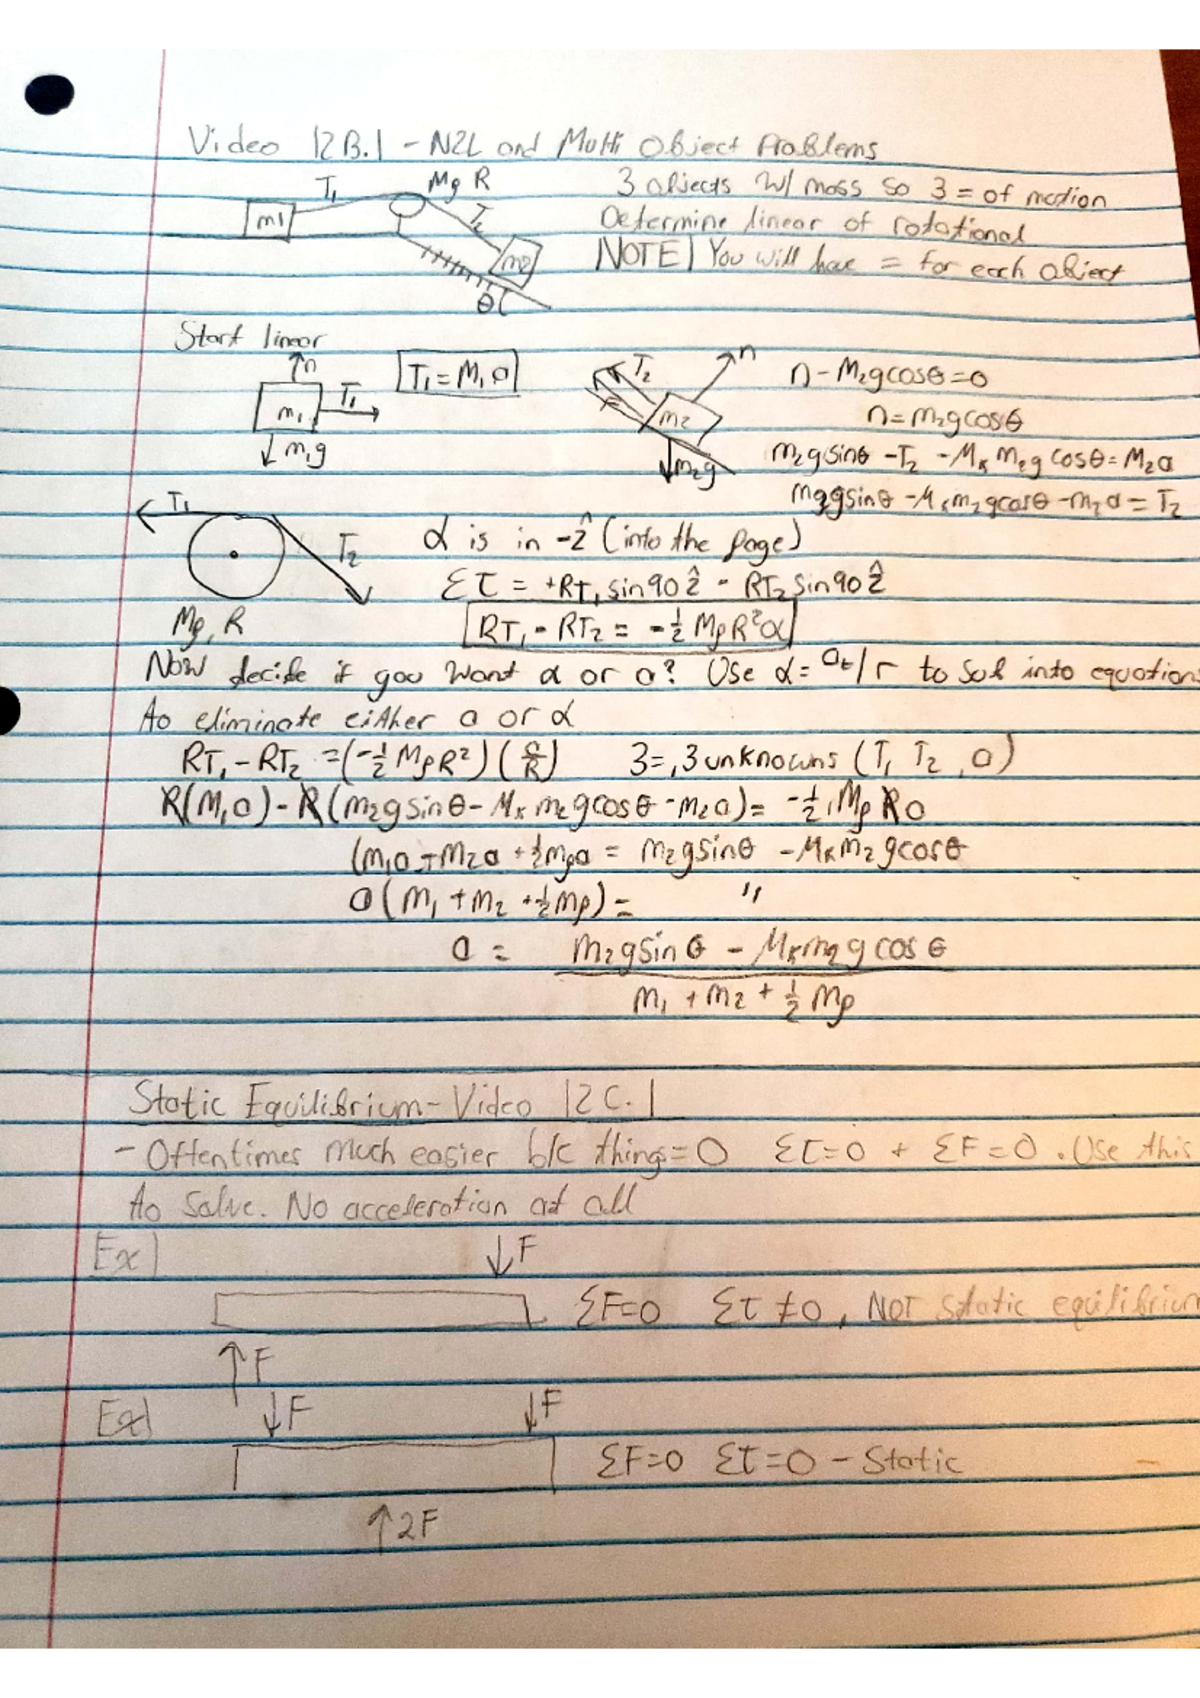 Video 12B.1 - N2L and Multi Object Problems
T₁ Mp R 3 objects w/ mass so 3 = of motion
m1 T₂ Determine linear of rotational
m2 NOTE] You will have = for each object
θ
Start linear
n T₁ = M₁a T₂ n n - M₂gcosθ=0
m₁ T₁ m₂ n=m₂gcosθ
m₁g m₂g m₂gsinθ - T₂ - Mₖm₂gcosθ=M₂a
m₂gsinθ - Mₖm₂gcosθ - m₂a = T₂
T₁ T₂ α is in -ẑ (into the page)
Στ = +RT₁ sin90 ẑ - RT₂ sin90 ẑ
Mp, R RT₁ - RT₂ = -½ MpR²α
Now decide if you want α or a? Use α= at/r to sub into equations
to eliminate either a or α
RT₁ - RT₂ =(-½MpR²)(a/R) 3=, 3 unknowns (T₁ T₂, a)
R(M₁a) - R(m₂gsinθ - Mₖm₂gcosθ - m₂a)= -½MpRa
(m₁a + m₂a + ½mpa = m₂gsinθ - Mₖm₂gcosθ
a(m₁ + m₂ + ½mp) = "
a = m₂gsinθ - Mₖm₂gcosθ
m₁ + m₂ + ½ mp
Static Equilibrium - Video 12C.1
- Oftentimes much easier b/c things=0 Στ=0 + ΣF=0. Use this
to solve. No acceleration at all
Ex] F
ΣF=0 Στ≠0, NOT static equilibrium
F
Ex] F F
ΣF=0 Στ=0 - Static
2F